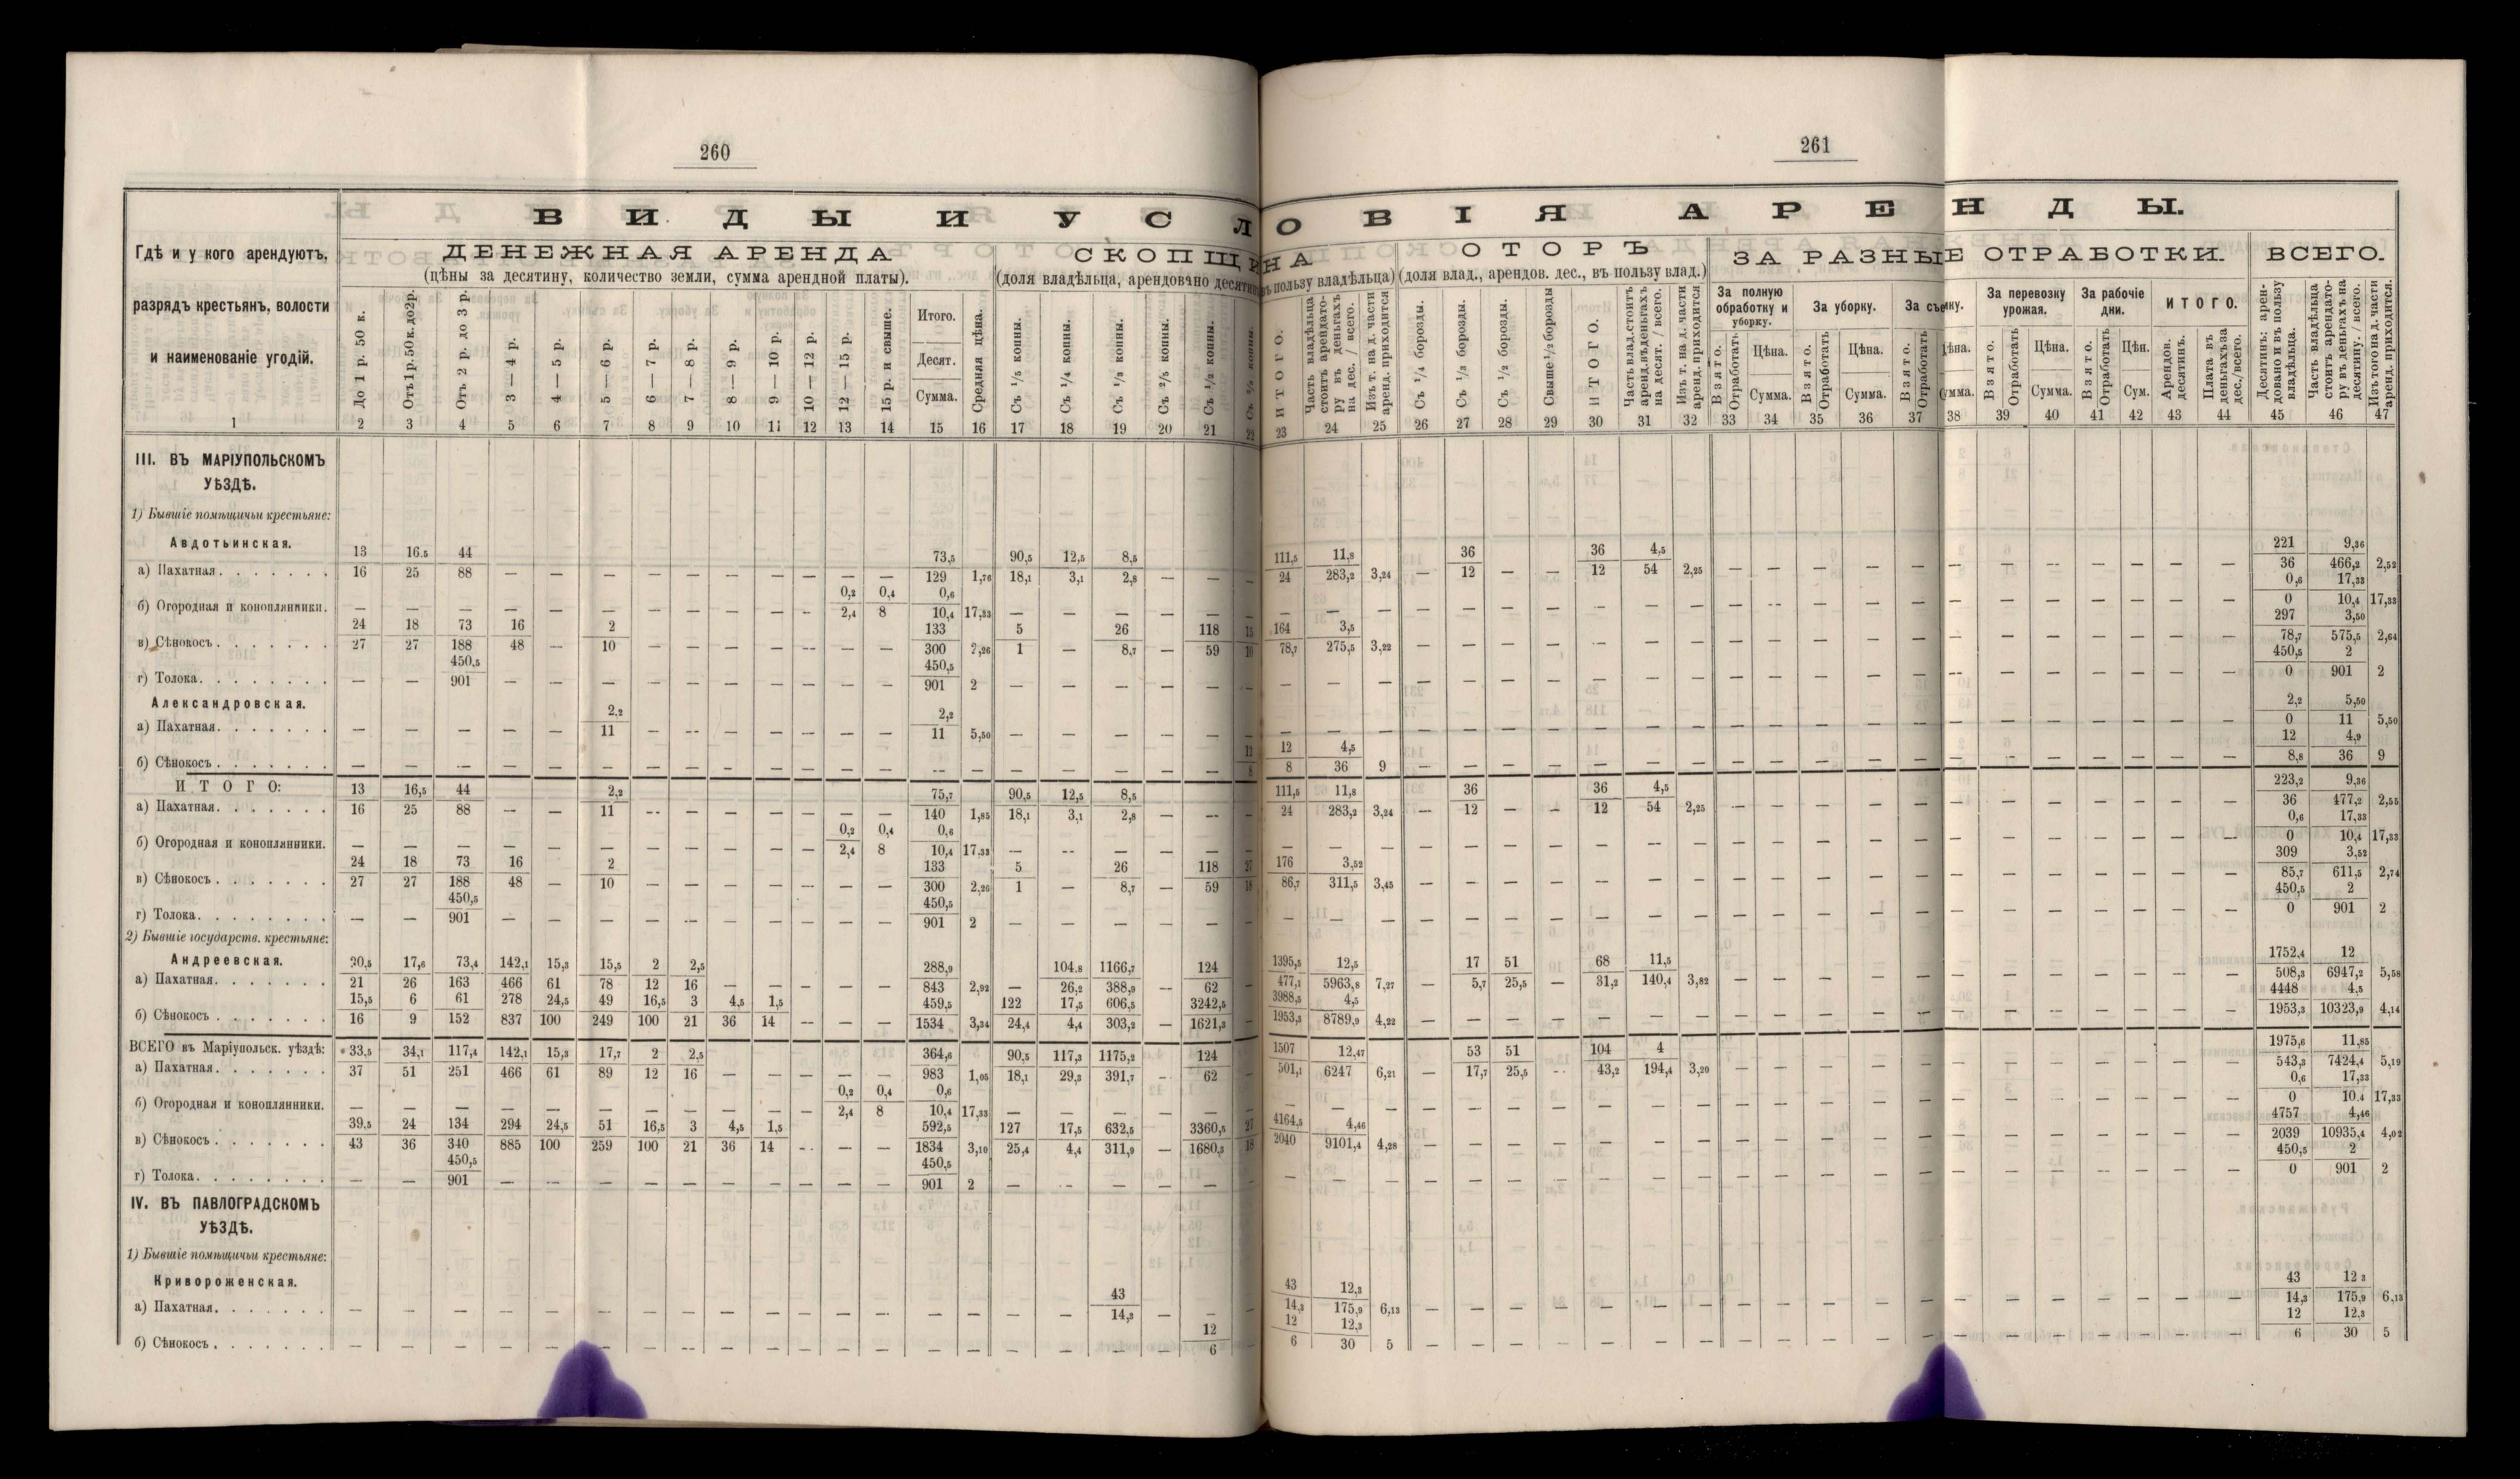 260
261
ВИДЫ И УСЛОВІЯ АРЕНДЫ.
Гдѣ и у кого арендуютъ,
разрядъ крестьянъ, волости
и наименованіе угодій.
ДЕНЕЖНАЯ АРЕНДА
(цѣны за десятину, количество земли, сумма арендной платы).
СКОПЩИНА
(доля владѣльца, арендовано десятинъ въ пользу владѣльца)
ОТОРЪ
(доля влад., арендов. дес., въ пользу влад.)
ЗА РАЗНЫЕ ОТРАБОТКИ.
ВСЕГО.
До 1 р. 50 к.
Отъ 1 р. 50 к. до 2 р.
Отъ 2 р. до 3 р.
3 — 4 р.
4 — 5 р.
5 — 6 р.
6 — 7 р.
7 — 8 р.
8 — 9 р.
9 — 10 р.
10 — 12 р.
12 — 15 р.
15 р. и свыше.
Итого.
Десят.
Сумма.
Средняя цѣна.
Съ 1/5 копны.
Съ 1/4 копны.
Съ 1/3 копны.
Съ 2/5 копны.
Съ 1/2 копны.
ИТОГО.
Часть владѣльца стоитъ арендатору въ деньгахъ на дес. / всего.
Изъ т. на д. части аренд. приходится
Съ 1/4 борозды.
Съ 1/3 борозды.
Съ 1/2 борозды.
Свыше 1/2 борозды
ИТОГО.
Часть влад. стоитъ аренд. въ деньгахъ на десят. / всего.
Изъ т. на д. части аренд. приходится
За полную обработку и уборку.
За уборку.
За съемку.
За перевозку урожая.
За рабочіе дни.
ИТОГО.
Взято. Отработать Цѣна. Сумма.
Взято. Отработать Цѣна. Сумма.
Взято. Отработать Цѣна. Сумма.
Взято. Отработать Цѣна. Сумма.
Взято. Отработать Цѣн. Сум.
Арендов. десятинъ.
Плата въ деньгахъ за дес./всего.
Десятинъ: арендовано и въ пользу владѣльца.
Часть владѣльца стоитъ арендатору въ деньгахъ на десятину. / всего.
Изъ того на д. части аренд. приходится.
1 2 3 4 5 6 7 8 9 10 11 12 13 14 15 16 17 18 19 20 21 22 23 24 25 26 27 28 29 30 31 32 33 34 35 36 37 38 39 40 41 42 43 44 45 46 47
III. ВЪ МАРІУПОЛЬСКОМЪ
УѢЗДѢ.
1) Бывшіе помѣщичьи крестьяне:
Авдотьинская.
13 16.5 44 73,5 90,5 12,5 8,5 111,5 11,8 36 36 4,5 221 9,36
а) Пахатная. 16 25 88 — — — — — — — — — — 129 1,76 18,1 3,1 2,8 — — — 24 283,2 3,24 — 12 — — 12 54 2,25 — — — — — — — — — — — — 36 466,2 2,52
0,2 0,4 0,6 0,6 17,33
б) Огородная и конопляники. — — — — — — — — — — — 2,4 8 10,4 17,33 — — — — — — — — — — — — — — — — — — — — — — — — — — — — 0 10,4 17,33
24 18 73 16 2 133 5 26 118 15 164 3,5 297 3,50
в) Сѣнокосъ. 27 27 188 48 — 10 — — — — — — — 300 2,26 1 — 8,7 — 59 10 78,7 275,5 3,22 — — — — — — — — — — — — — — — — — — — 78,7 575,5 2,64
450,5 450,5 450,5 2
г) Толока. — — 901 — — — — — — — — — — 901 2 — — — — — — — — — — — — — — — — — — — — — — — — — — — — 0 901 2
Александровская.
2,2 2,2 2,2 5,50
а) Пахатная. — — — — — 11 — — — — — — — 11 5,50 — — — — — — — — — — — — — — — — — — — — — — — — — — — — 0 11 5,50
12 12 4,5 12 4,9
б) Сѣнокосъ — — — — — — — — — — — — — — — — — — — — 8 8 36 9 — — — — — — — — — — — — — — — — — — — 8,8 36 9
ИТОГО: 13 16,5 44 2,2 75,7 90,5 12,5 8,5 111,5 11,8 36 36 4,5 223,2 9,36
а) Пахатная. 16 25 88 — — 11 — — — — — — — 140 1,85 18,1 3,1 2,8 — — — 24 283,2 3,24 — 12 — — 12 54 2,25 — — — — — — — — — — — — 36 477,2 2,55
0,2 0,4 0,6 0,6 17,33
б) Огородная и конопляники. — — — — — — — — — — — 2,4 8 10,4 17,33 — — — — — — — — — — — — — — — — — — — — — — — — — — — — 0 10,4 17,33
24 18 73 16 2 133 5 26 118 27 176 3,52 309 3,52
в) Сѣнокосъ 27 27 188 48 — 10 — — — — — — — 300 2,26 1 — 8,7 — 59 18 86,7 311,5 3,45 — — — — — — — — — — — — — — — — — — — 85,7 611,5 2,74
450,5 450,5 450,5 2
г) Толока. — — 901 — — — — — — — — — — 901 2 — — — — — — — — — — — — — — — — — — — — — — — — — — — — 0 901 2
2) Бывшіе государств. крестьяне:
Андреевская. 20,5 17,6 73,4 142,1 15,3 15,5 2 2,5 288,9 104,8 1166,7 124 1395,5 12,5 17 51 68 11,5 1752,4 12
а) Пахатная. 21 26 163 466 61 78 12 16 — — — — — 843 2,92 — 26,2 388,9 — 62 — 477,1 5963,8 7,27 — 5,7 25,5 — 31,2 140,4 3,82 — — — — — — — — — — — — 508,3 6947,2 5,58
15,5 6 61 278 24,5 49 16,5 3 4,5 1,5 459,5 122 17,5 606,5 3242,5 3988,5 4,5 4448 4,5
б) Сѣнокосъ 16 9 152 837 100 249 100 21 36 14 — — — 1534 3,34 24,4 4,4 303,2 — 1621,3 — 1953,3 8789,9 4,22 — — — — — — — — — — — — — — — — — — — 1953,3 10323,9 4,14
ВСЕГО въ Маріупольск. уѣздѣ: 33,5 34,1 117,4 142,1 15,3 17,7 2 2,5 364,6 90,5 117,3 1175,2 124 1507 12,47 53 51 104 4 1975,6 11,85
а) Пахатная. 37 51 251 466 61 89 12 16 — — — — — 983 1,05 18,1 29,3 391,7 — 62 — 501,1 6247 6,21 — 17,7 25,5 — 43,2 194,4 3,20 — — — — — — — — — — — — 543,3 7424,4 5,19
0,2 0,4 0,6 0,6 17,33
б) Огородная и конопляники. — — — — — — — — — — — 2,4 8 10,4 17,33 — — — — — — — — — — — — — — — — — — — — — — — — — — — — 0 10.4 17,33
39,5 24 134 294 24,5 51 16,5 3 4,5 1,5 592,5 127 17,5 632,5 3360,5 27 4164,5 4,46 4757 4,46
в) Сѣнокосъ 43 36 340 885 100 259 100 21 36 14 — — — 1834 3,10 25,4 4,4 311,9 — 1680,3 18 2040 9101,4 4,28 — — — — — — — — — — — — — — — — — — — 2039 10935,4 4,02
450,5 450,5 450,5 2
г) Толока. — — 901 — — — — — — — — — — 901 2 — — — — — — — — — — — — — — — — — — — — — — — — — — — — 0 901 2
IV. ВЪ ПАВЛОГРАДСКОМЪ
УѢЗДѢ.
1) Бывшіе помѣщичьи крестьяне:
Кривороженская.
43 43 12,3 43 12 3
а) Пахатная. — — — — — — — — — — — — — — — — — 14,3 — — — 14,3 175,9 6,13 — — — — — — — — — — — — — — — — — — — 14,3 175,9 6,13
12 12 12,3 12 12,3
б) Сѣнокосъ — — — — — — — — — — — — — — — — — — — 6 — 6 30 5 — — — — — — — — — — — — — — — — — — — 6 30 5